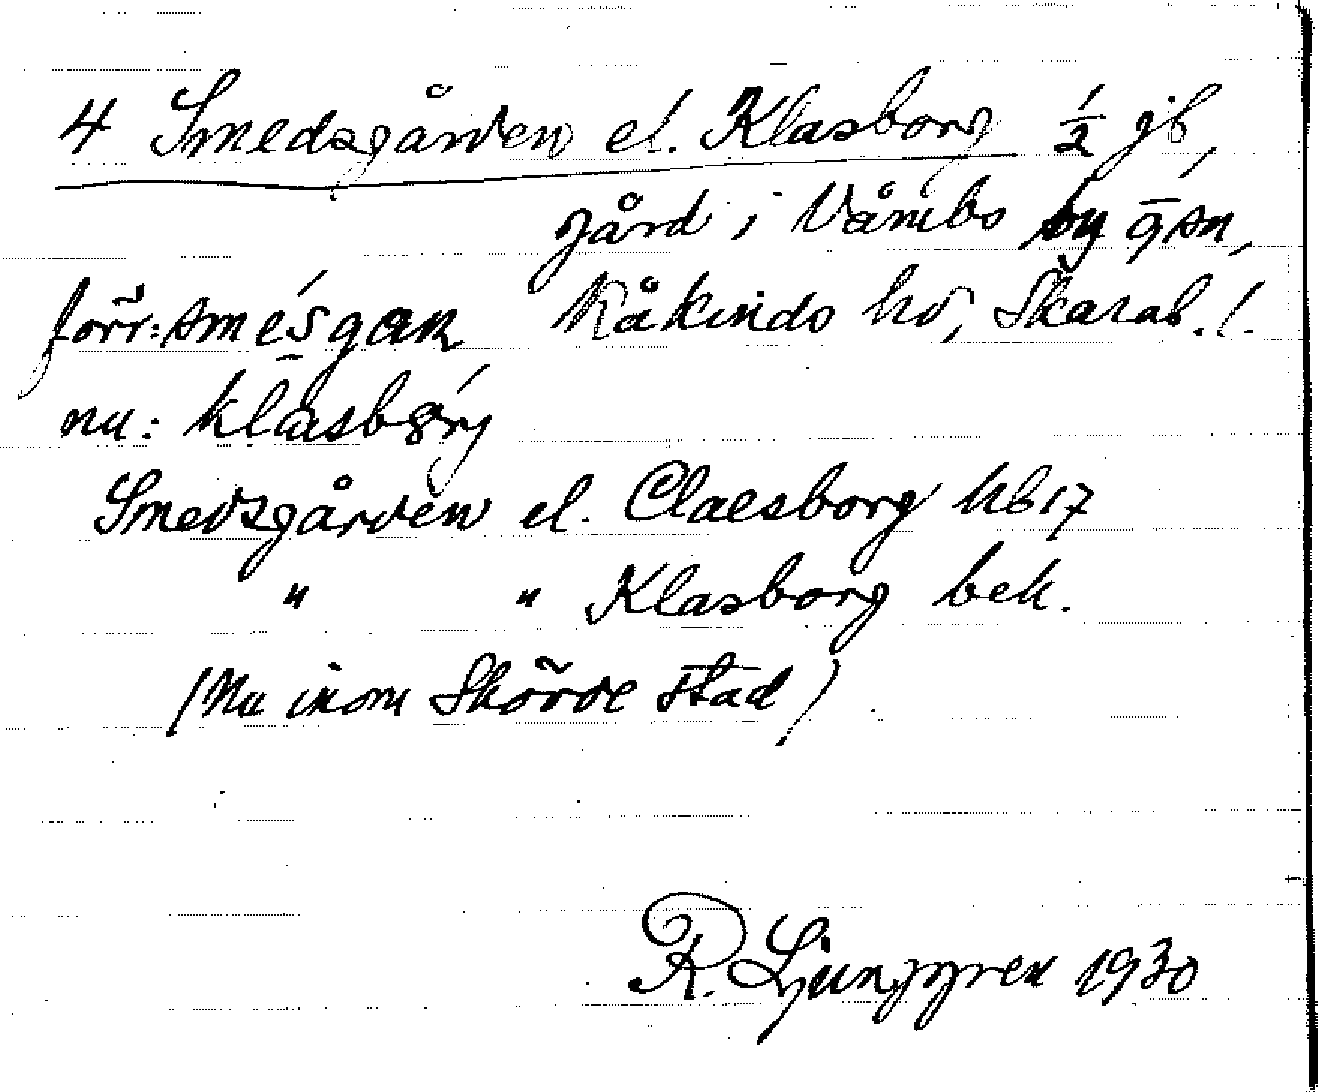 4 Smedsgården el. Klasborg ½ gb,
gård i Våmbs by o̅ sn,
förr: smésgan Kåkinds hd, Skarab. l.
nu: klásbórj
Smedsgården el. Claesborg Ub 17
" " Klasborg bek.
(Nu inom Skövde stad)
R. Ljunggren 1930